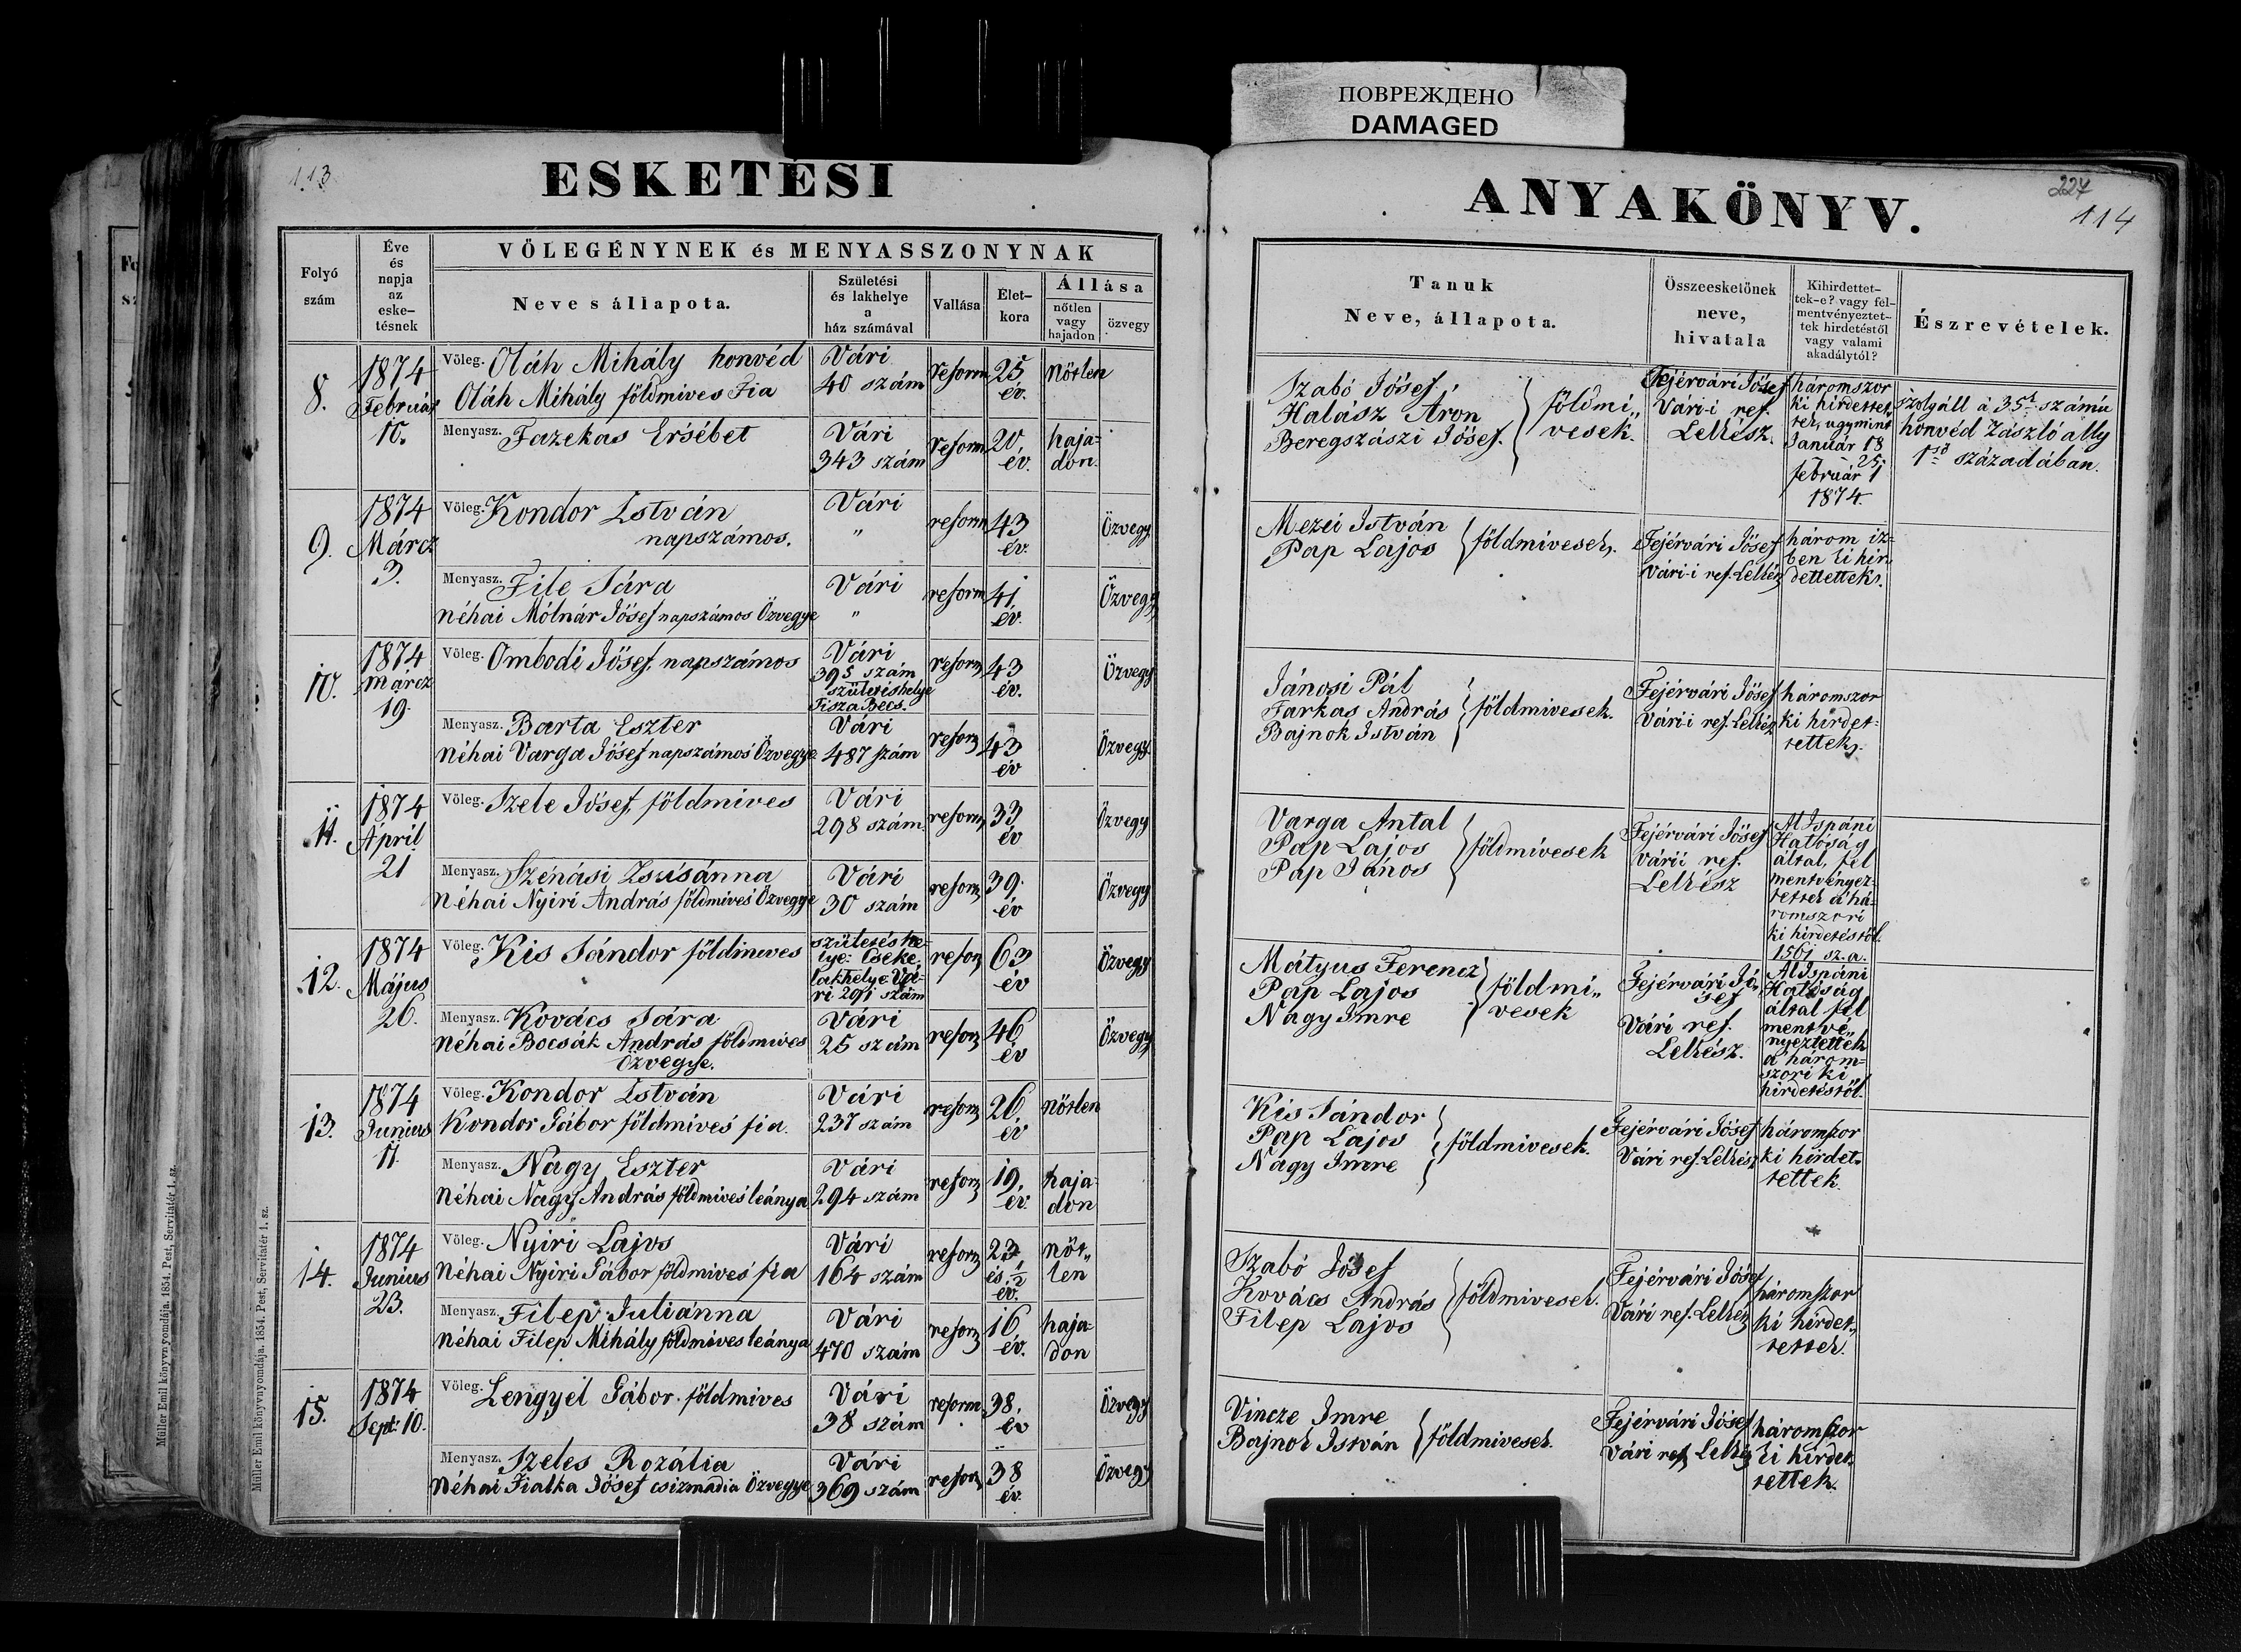 ПОВРЕЖДЕНО
DAMAGED
113
ESKETÉSI
Folyó szám
Éve és napja az esketésnek
VŐLEGÉNYNEK és MENYASSZONYNAK
Neve s állapota.
Születési és lakhelye a ház számával
Vallása
Életkora
Állása
nőtlen vagy hajadon
özvegy
8.
1874 Február 10.
Vőleg. Oláh Mihály honvéd
Oláh Mihály földmives Fia
Vári
40 szám
reform
25 év.
Nőtlen
Menyasz. Fazekas Ersébet
Vári
343 szám
reform
20 év.
haja=
don.
9.
1874 Márcz 3.
Vőleg. Kondor István
napszámos.
Vári
"
reform
43 év.
Özvegy
Menyasz. File Sára
néhai Mólnár Jósef napszámos Özvegye
Vári
"
reform
41 év.
Özvegy
10.
1874 Marcz 19.
Vőleg. Ombodi Jósef, napszámos
Vári
395 szám
születéshelye
Tisza Becs.
reform
43 év.
Özvegy
Menyasz. Barta Eszter
Néhai Varga Jósef napszámos Özvegye
Vári
487 szám
reform
43 év
Özvegy.
11.
1874 Ápril 21
Vőleg. Szele Jósef, földmives
Vári
298 szám.
reform
33 év
Özvegy
Menyasz. Szénási Zsúsánna
Néhai Nyiri András földmives Özvegye
Vári
30 szám
reform
39. év
Özvegy
12.
1874 Május 26.
Vőleg. Kis Sándor földmives
születés he=
lye: Cseke,
lakhelye Vá=
ri 291 szám
reform
63 év
Özvegy
Menyasz. Kovács Sára
Néhai Bocsák András földmives
Özvegye.
Vári
25 szám
reform
46 év
Özvegy
13.
1874 Junius 11.
Vőleg. Kondor István
Kondor Gábor földmives fia.
Vári
237 szám
reform
26 év
Nőtlen
Menyasz. Nagy Eszter
Néhai Nagy András földmives leánya
Vári
294 szám
reform
19. év.
haja=
don
14.
1874 Junius 23.
Vőleg. Nyiri Lajos
Néhai Nyiri Gábor földmives fia
Vári
164 szám
reform
23 és 1/2 év.
nőt„
len
Menyasz. Filep Juliánna
Néhai Filep Mihály földmives leánya
Vári
470 szám
reform
16 év.
haja=
don
15.
1874 Sept: 10.
Vőleg. Lengyel Gábor. földmives
Vári
38 szám
reform.
38. év
Özvegy
Menyasz. Szeles Rozália
Néhai Fialka Jósef csizmadia Özvegye
Vári
369 szám
reform
38 év.
Özvegy
Müller Emil könyvnyomdája. 1854. Pest, Servitatér 1. sz.
Müller Emil könyvnyomdája. 1854. Pest, Servitatér 1. sz.
ANYAKÖNYV.
227
114
Tanuk
Neve, állapota.
Összeesketőnek neve, hivatala
Kihirdettet-
tek-e? vagy fel-
mentvényeztet-
tek hirdetéstől
vagy valami
akadálytól?
Észrevételek.
Szabó Jósef,
Halász Áron
Beregszászi Jósef.
földmi„
vesek.
Fejérvári Jósef
Vári-i ref.
Lelkész.
háromszor
ki hirdettet„
tek, ugymint
Január 18
25,
február 1
1874.
szolgáll a 35t számú
honvéd Zászló ally
1ső századában.
Mezei István
Pap Lajos
földmivesek.
Fejérvári Jósef
Vári-i ref. Lelkész
három íz=
ben ki hir„
dettettek.
Jánosi Pál
Farkas András
Bajnok István
földmivesek.
Fejérvári Jósef
Vári-i ref. Lelkész
háromszor
ki hirdet=
tettek.
Varga Antal
Pap Lajos
Pap János
földmivesek
Fejérvári Jósef
várii ref.
Lelkész
Al Ispáni
Hatóság
által, fel
mentvényez=
tettek a há=
romszori
ki hirdetéstől.
1561 sz. a.
Mátyus Ferencz
Pap Lajos
Nagy Imre
földmi„
vesek
Fejérvári Jó„
sef
Vári ref.
Lelkész.
Al Ispáni
Hatóság
által fel
mentvé„
nyeztettek
a három=
szori ki
hirdetéstől.
Kis Sándor
Pap Lajos
Nagy Imre
földmivesek.
Fejérvári Jósef
Vári ref. Lelkész
háromszor
ki hirdet„
tettek.
Szabó Jósef
Kovács András
Filep Lajos
földmivesek.
Fejérvári Jósef
Vári ref. Lelkész
háromszor
ki hirdet„
tettek.
Vincze Imre
Bajnok István
földmivesek.
Fejérvári Jósef
Vári ref. Lelkész
háromszor
ki hirdet„
tettek.